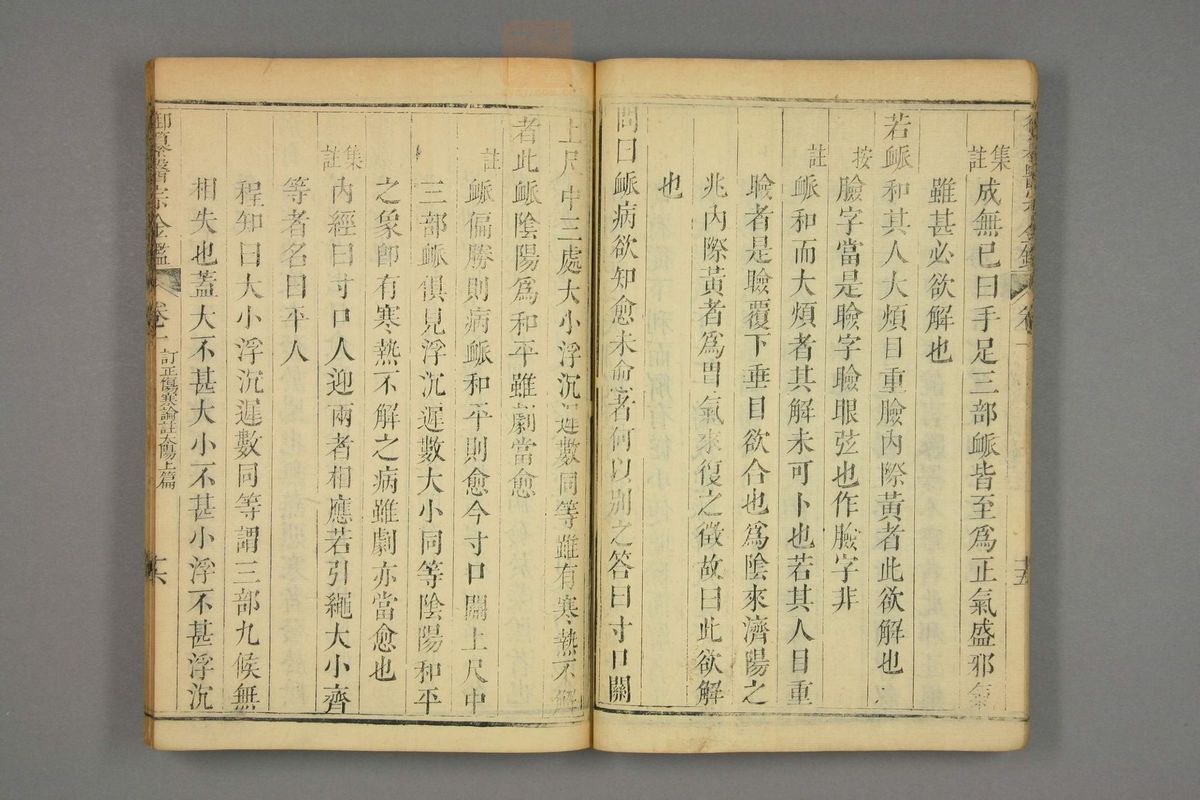 集註
成無已曰手足三部䘑皆至爲正氣盛邪氣
雖甚必欲解也
若䘑和其人大煩目重臉內際黃者此欲解也
按
臉字當是瞼字瞼眼弦也作臉字非
註
䘑和而大煩者其解未可卜也若其人目重
瞼者是瞼覆下垂目欲合也爲陰來濟陽之
兆內際黃者爲胃氣來復之徵故曰此欲解
也
問曰䘑病欲知愈未愈者何以別之答曰寸口關
上尺中三處大小浮沉遲數同等雖有寒熱不解
者此䘑陰陽爲和平雖劇當愈
註
䘑偏勝則病䘑和平則愈今寸口關上尺中
三部䘑俱見浮沉遲數大小同等陰陽和平
之象卽有寒熱不解之病雖劇亦當愈也
集註
內經曰寸口人迎兩者相應若引繩大小齊
等者名曰平人
程知曰大小浮沉遲數同等謂三部九候無
相失也蓋大不甚大小不甚小浮不甚浮沉
御纂醫宗金鑑
卷一
訂正傷寒論註太陽上篇
十六